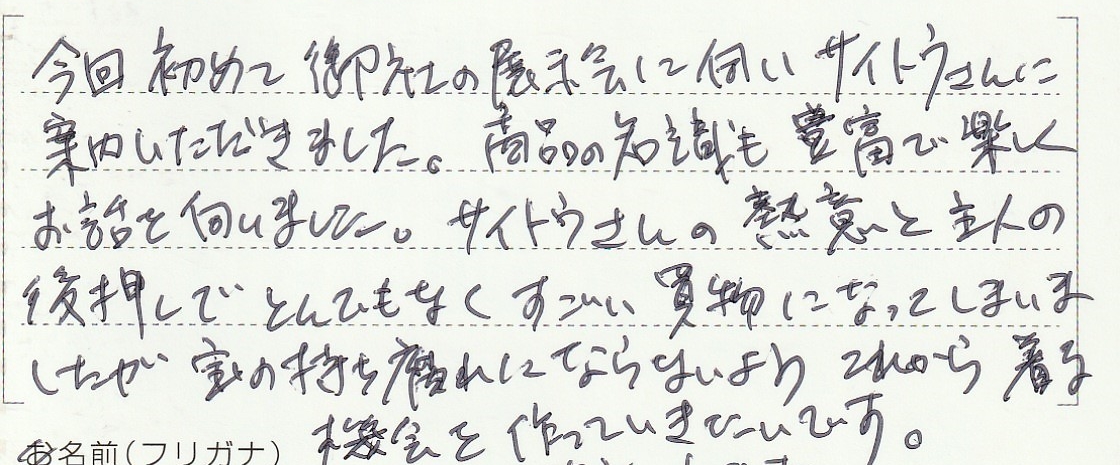 今回初めて御社の展示会に伺いサイトウさんに
案内いただきました。商品の知識も豊富で楽しく
お話を伺いました。サイトウさんの熱意と主人の
後押しでとんでもなくすごい買物になってしまいま
したが宝の持ち腐れにならないようこれから着る
機会を作っていきたいです。
お名前(フリガナ)